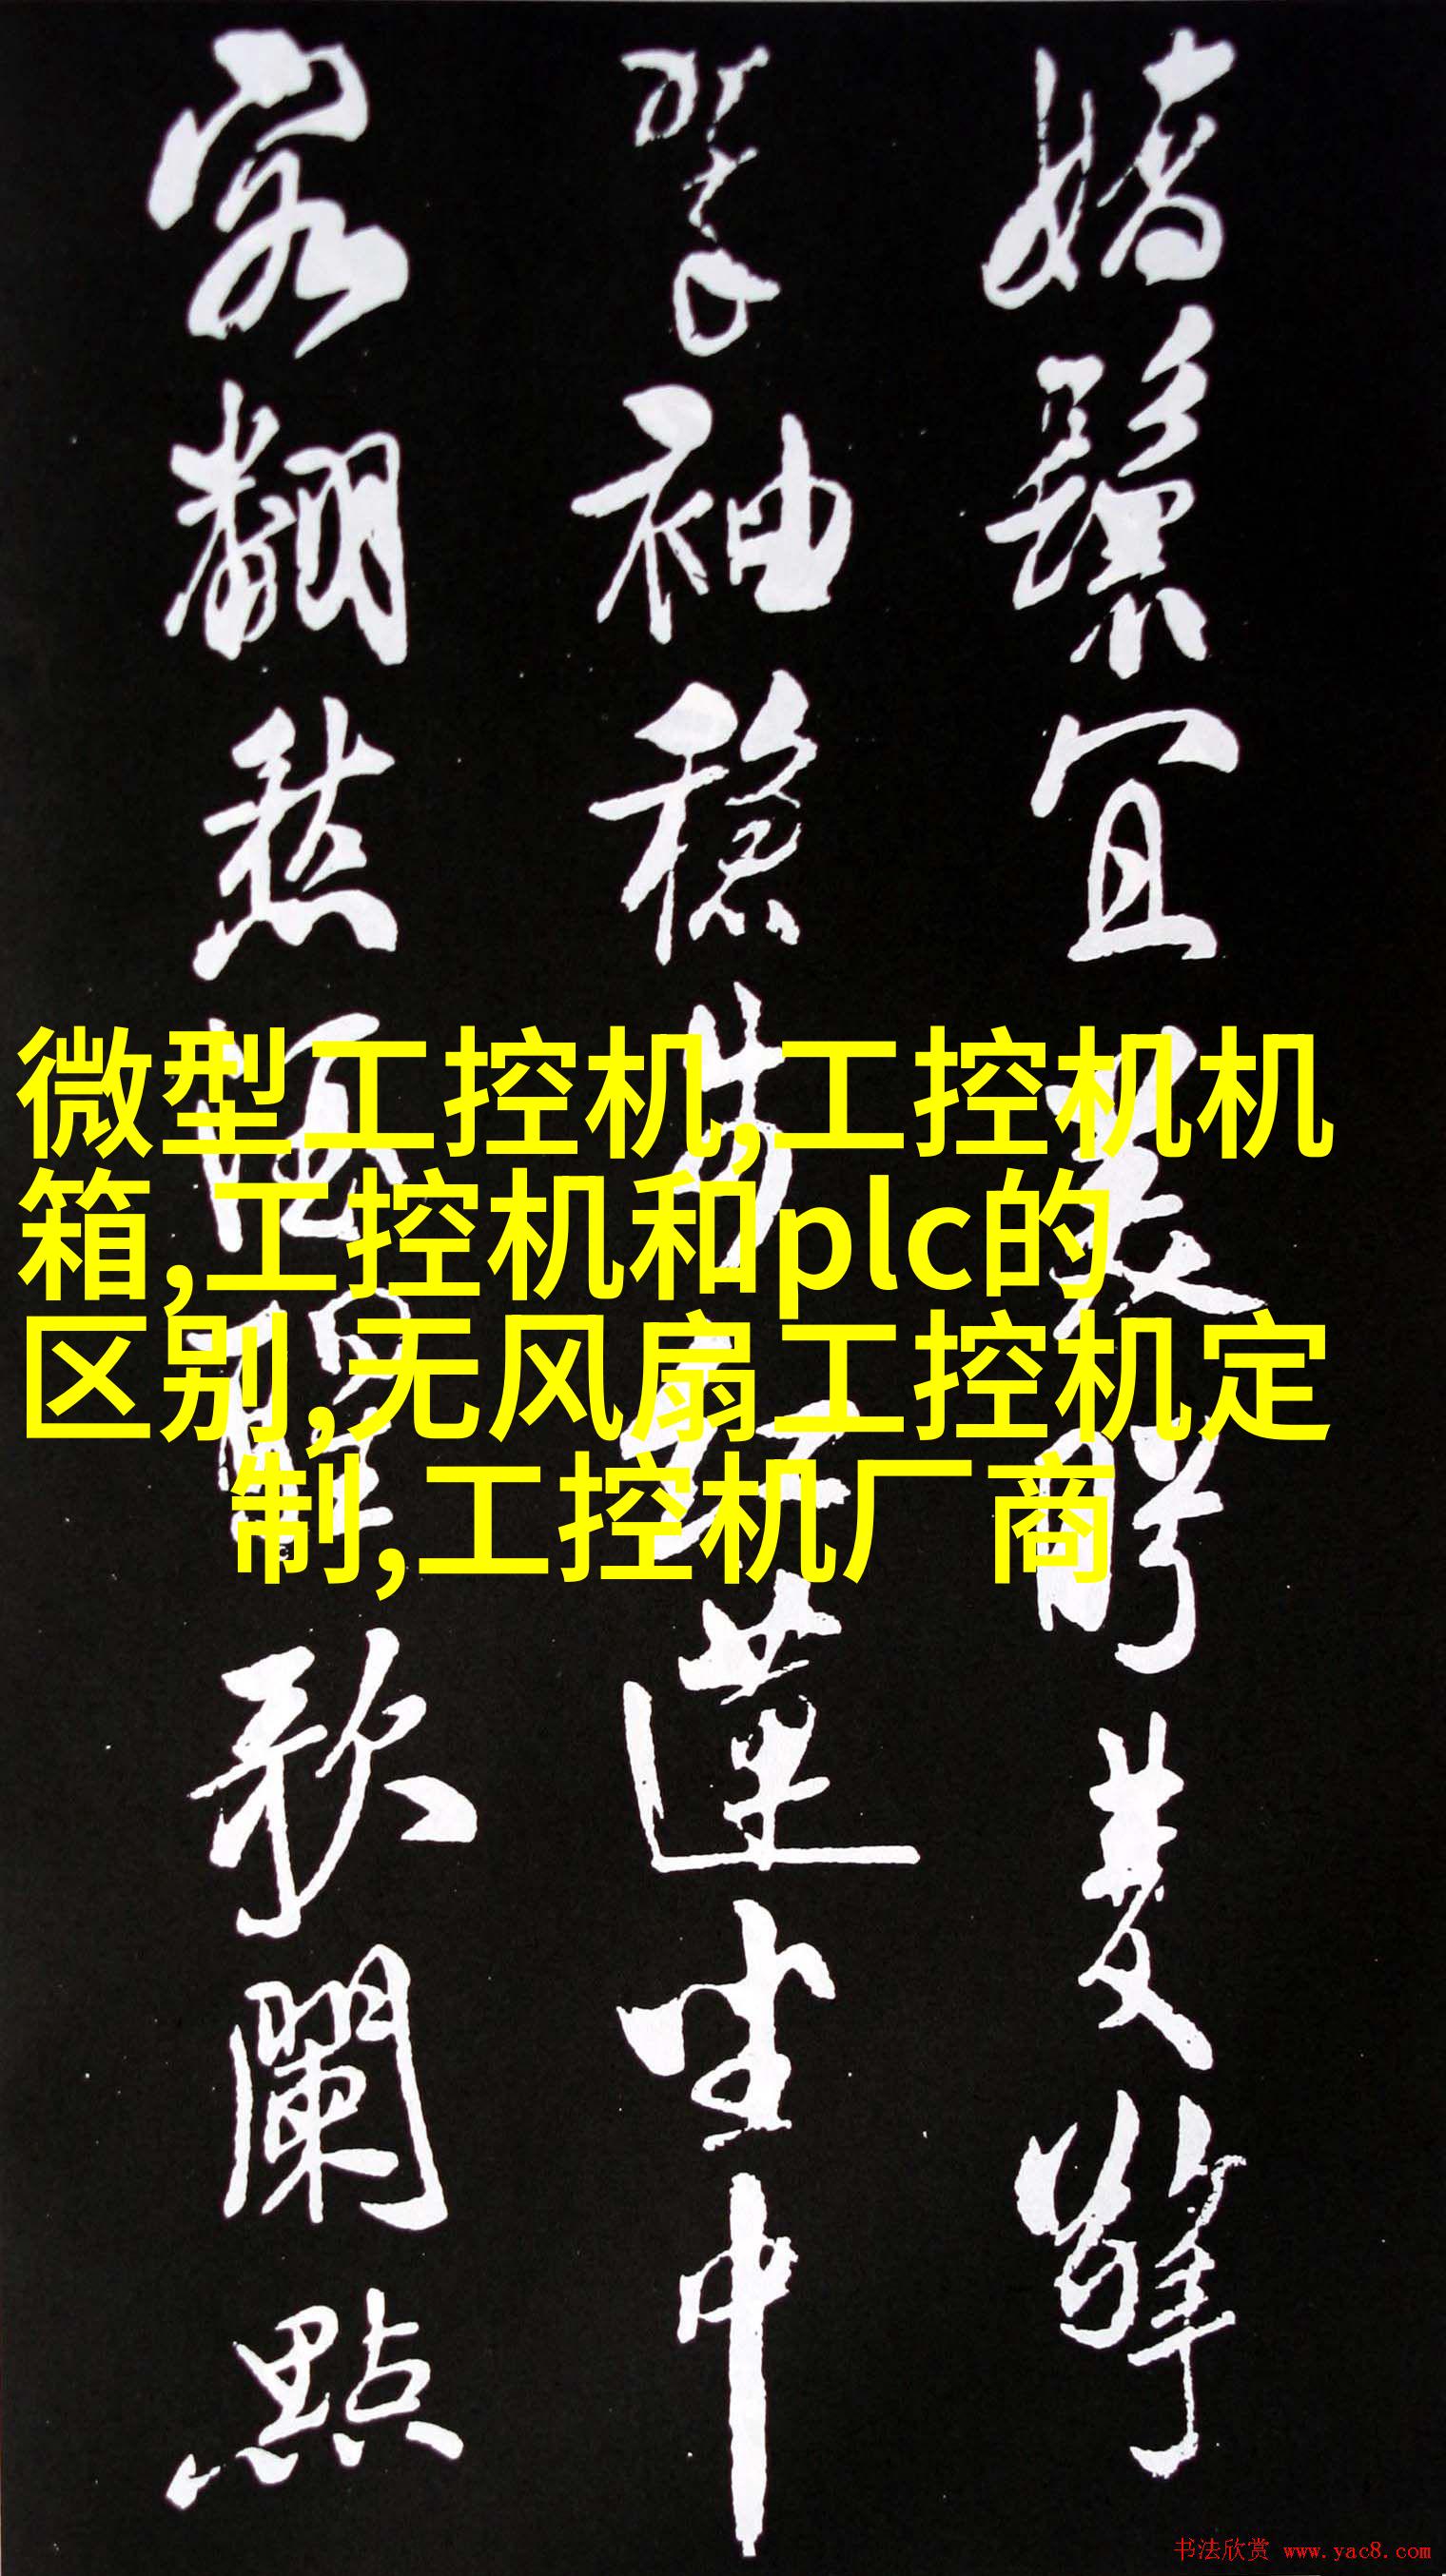 嬌鬟宜美盼雙擎
翠袖穩步紅蓮坐中
客翻愁酒醒歌闌點
微型工控机,工控机机
箱,工控机和plc的
区别,无风扇工控机定
制,工控机厂商
书法欣赏 www.yac8.com